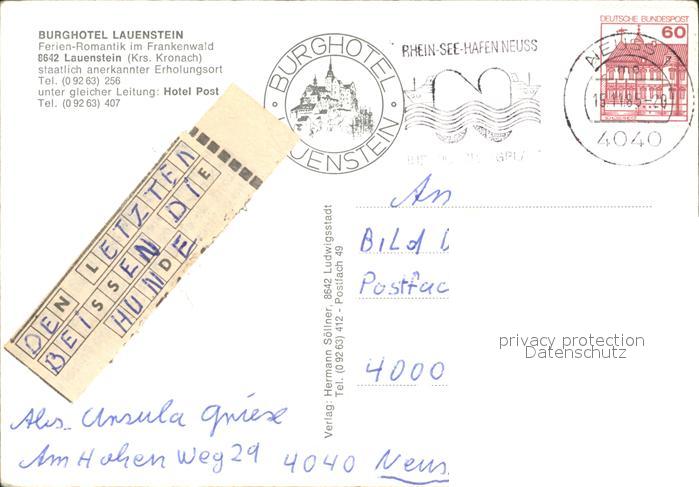 BURGHOTEL LAUENSTEIN
Ferien-Romantik im Frankenwald
8642 Lauenstein (Krs. Kronach)
staatlich anerkannter Erholungsort
Tel. (0 92 63) 256
unter gleicher Leitung: Hotel Post
Tel. (0 92 63) 407
BURGHOTEL
LAUENSTEIN
RHEIN-SEE-HAFEN NEUSS
DEUTSCHE BUNDESPOST
60
NEUSS
4040
DEN LETZTEN
BEISSEN DIE
HUNDE
Verlag: Hermann Söllner, 8642 Ludwigsstadt
Tel. (0 92 63) 412 - Postfach 49
An
Bild
Postfac
4000
privacy protection
Datenschutz
Abs. Ursula Griese
Am Hohen Weg 29 4040 Neus